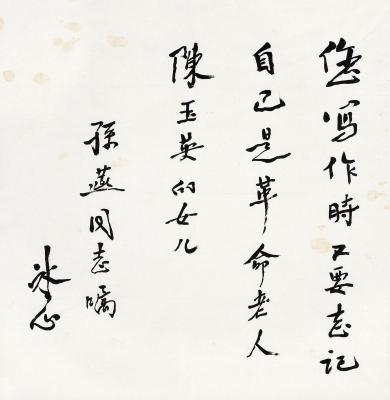 您寫作時不要忘记
自己是革命老人
陳玉英的女儿
孫燕同志嘱
冰心